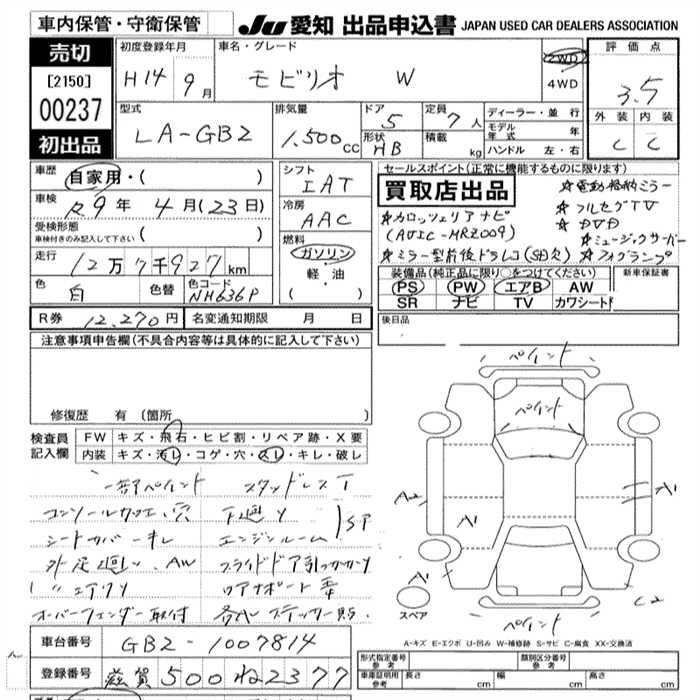 車内保管・守衛保管
JU 愛知 出品申込書 JAPAN USED CAR DEALERS ASSOCIATION
売切
[2150]
00237
初出品
初度登録年月
H14 9月
車名・グレード
モビリオ W
2WD
4WD
評価点
3.5
外装 内装
C C
型式
LA-GB2
排気量
1,500cc
ドア
5
形状
HB
定員
7人
積載
kg
ディーラー・並行
モデル年式 年
ハンドル 左・右
車歴
自家用・( )
車検
R9年 4月(23日)
受検形態
車検付きのみ記入して下さい ( )
走行
12万7千927km
色
白
色替
色コード
NH636P
シフト
IAT
冷房
AAC
燃料
ガソリン
軽・油
( )
セールスポイント(正常に機能するものに限ります)
買取店出品
☆電動格納ミラー
☆カロッツェリアナビ
(AVIC-MRZ009)
☆フルセグTV
☆DVD
☆ミュージックサーバー
☆ミラー型前後ドラレコ(SD欠)
☆フォグランプ
装備品(純正品に限り○をつけてください)
新車保証書
PS PW エアB AW
SR ナビ TV カワシート
R券 12,270円
名変通知期限 月 日
後日品
注意事項申告欄(不具合内容等は具体的に記入して下さい)
修復歴 有(箇所
検査員記入欄
FW キズ・飛石・ヒビ割・リペア跡・X要
内装 キズ・汚レ・コゲ・穴・スレ・キレ・破レ
一部ペイント スタッドレスT
下廻り
シートカバー キレ エンジンルーム
SP
オーバーフェンダー取付 各所ステッカー貼
ペイント
ペイント
A2
A1
A1
A1
A1
C2
スペア
A-キズ E-エクボ U-凹み W-補修跡 S-サビ C-腐食 XX-交換済
車台番号
GB2-1007814
登録番号
滋賀 500 ね 2377
形式指定番号 参考
類別区分番号 参考
車庫証明用 参考
長さ
幅
高さ